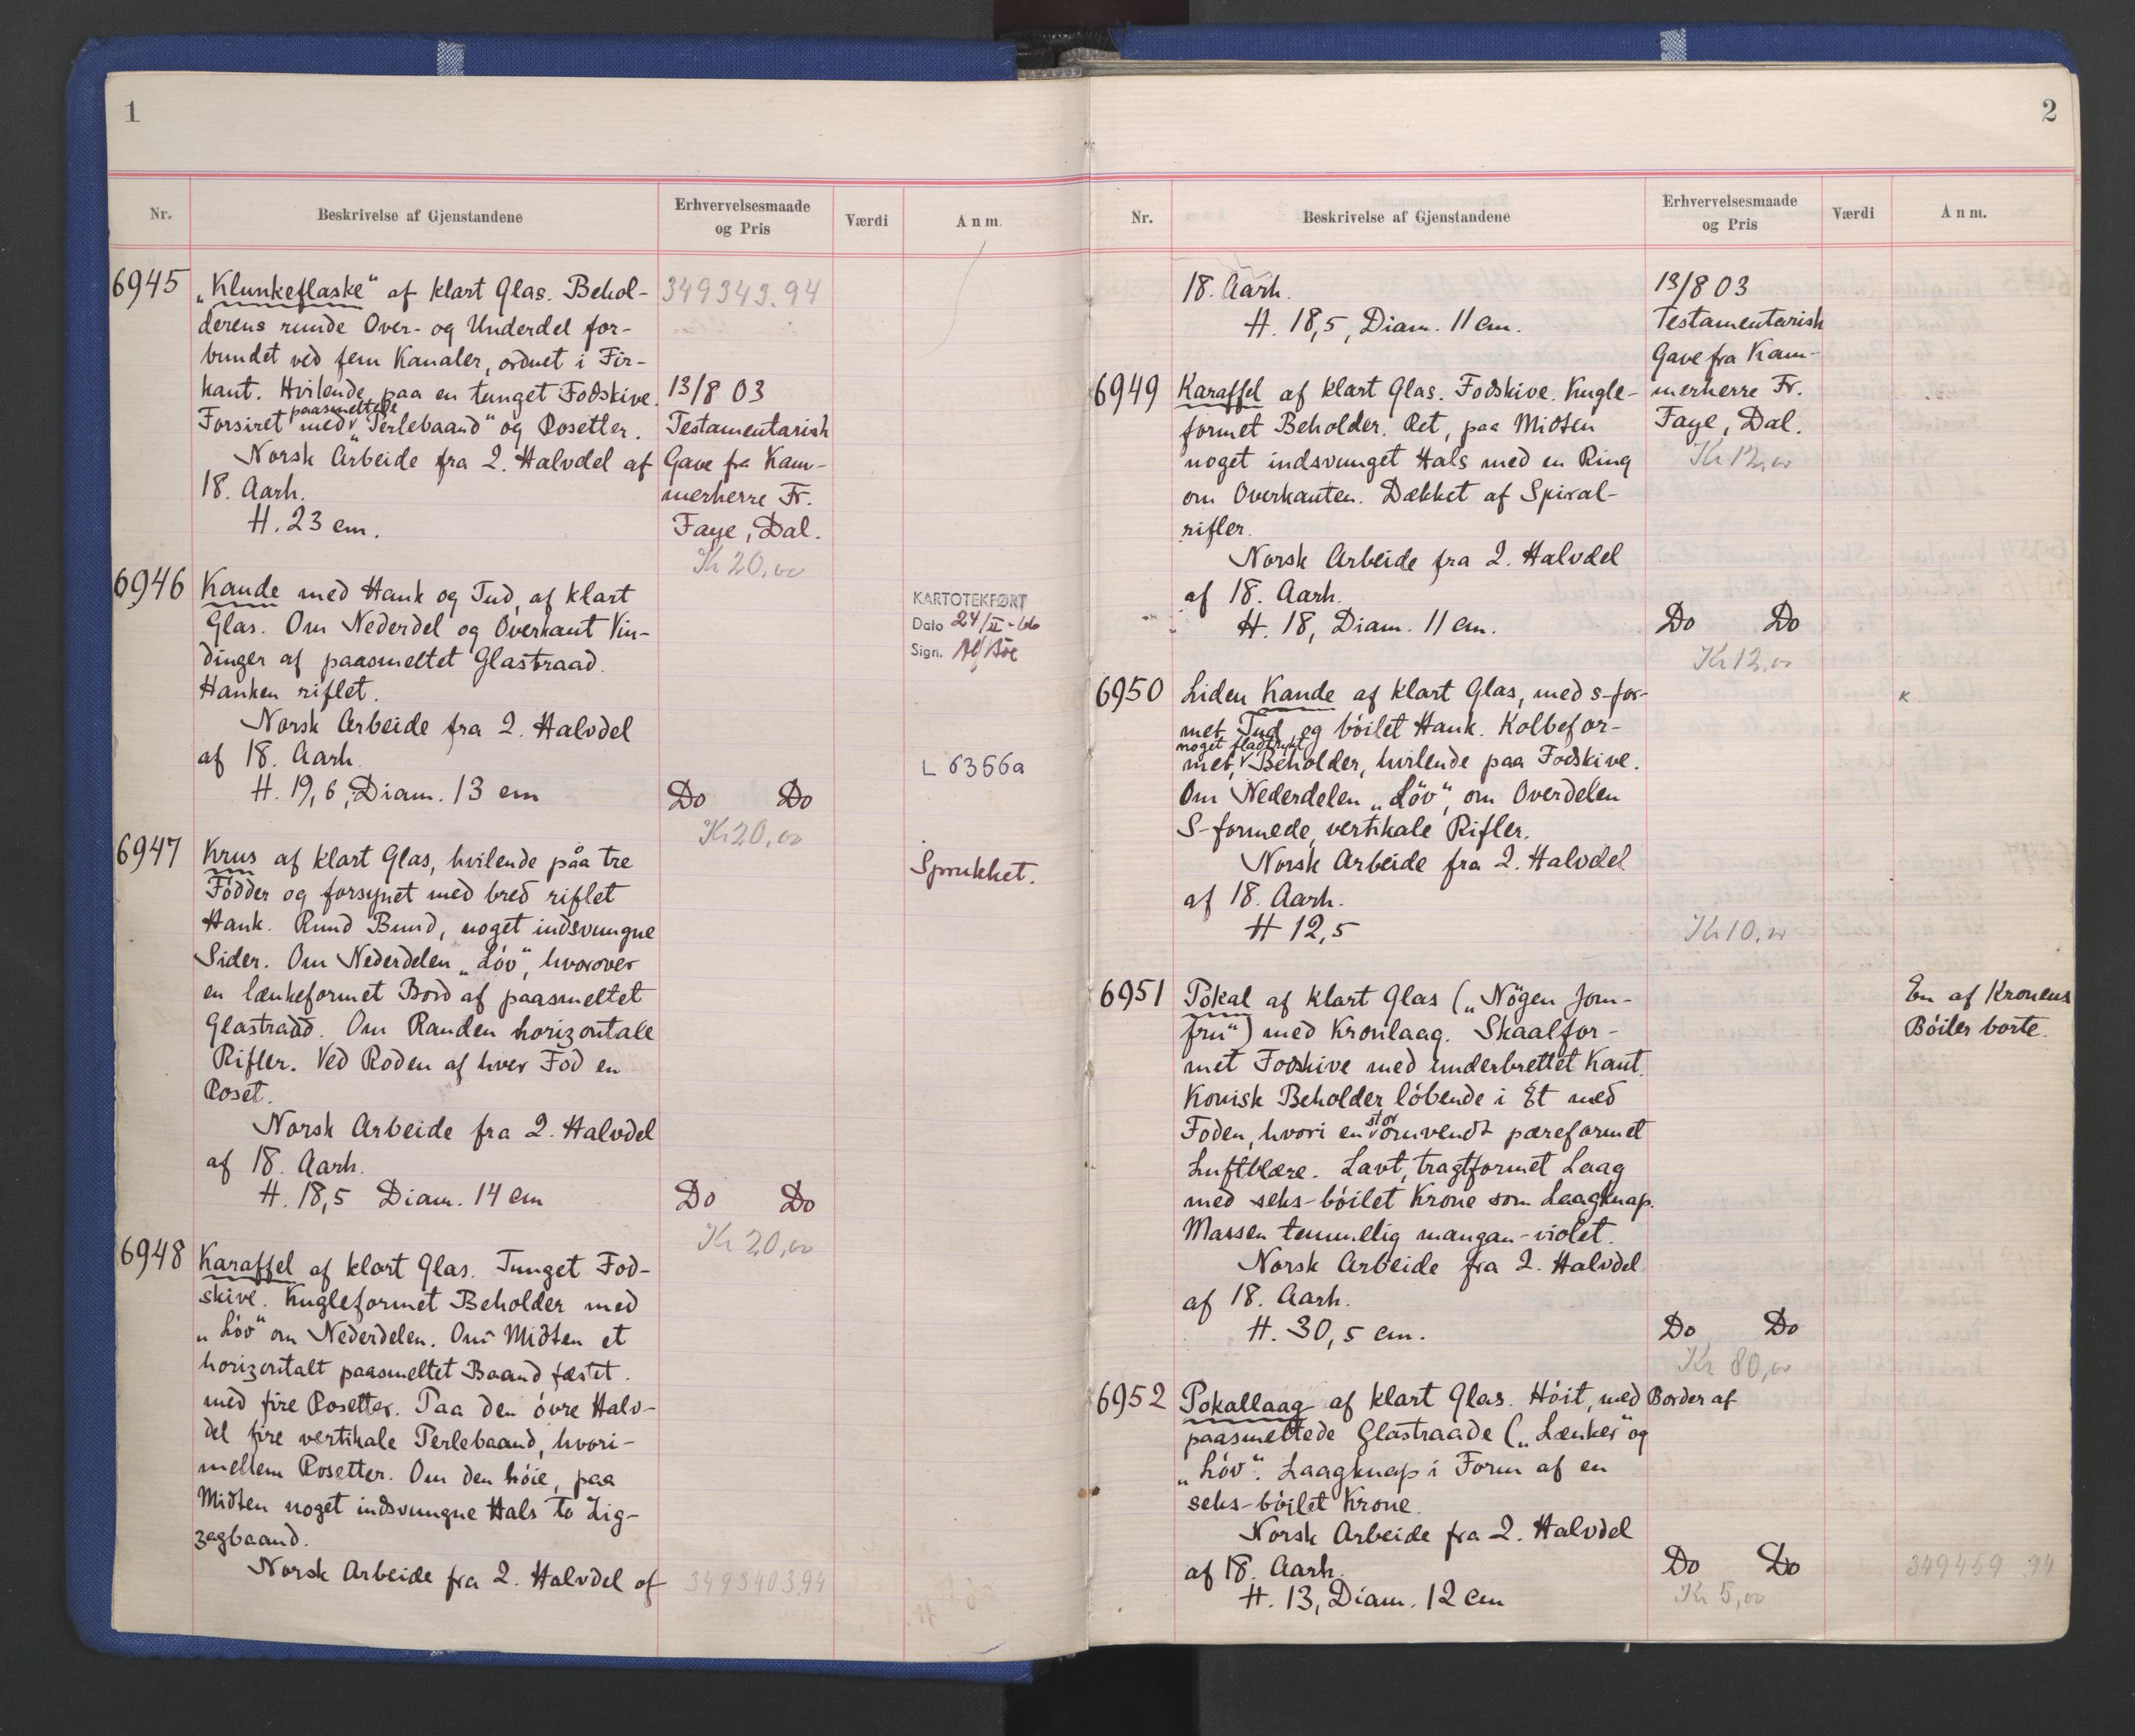 1
Nr.
Beskrivelse af Gjenstandene
Erhvervelsesmaade
og Pris
Værdi
Anm.
6945
„Klunkeflaske“ af klart Glas. Behol-
derens runde Over- og Underdel for-
bundet ved fem Kanaler, ordnet i Fir-
kant. Hvilende paa en tunget Fodskive.
paasmeltede
Forsiret med „Perlebaand“ og Rosetter.
Norsk Arbeide fra 2. Halvdel af
18. Aarh.
H. 23 cm.
349343.94
13/8 03
Testamentarisk
Gave fra Kam-
merherre Fr.
Faye, Dal.
Kr 20,00
6946
Kande med Hank og Tud, af klart
Glas. Om Nederdel og Overkant Vin-
dinger af paasmeltet Glastraad.
Hanken riflet.
Norsk Arbeide fra 2. Halvdel
af 18. Aarh.
H. 19,6, Diam. 13 cm
Do Do
Kr 20,00
KARTOTEKFØRT
Dato 24/II-66
Sign.
L 6356a
6947
Krus af klart Glas, hvilende paa tre
Födder og forsynet med bred riflet
Hank. Rund Bund, noget indsvungne
Sider. Om Nederdelen „Löv“, hvorover
en lænkeformet Bord af paasmeltet
Glastraad. Om Randen horizontale
Rifler. Ved Roden af hver Fod en
Roset.
Norsk Arbeide fra 2. Halvdel
af 18. Aarh.
H. 18,5 Diam. 14 cm
Do Do
Kr 20,00
Sprukket.
6948
Karaffel af klart Glas. Tunget Fod-
skive. Kugleformet Beholder med
„Löv“ om Nederdelen. Om Midten et
horizontalt paasmeltet Baand fæstet
med fire Rosetter. Paa den övre Halv-
del fire vertikale Perlebaand, hvori-
mellem Rosetter. Om den höie, paa
Midten noget indsvungne Hals to Zig-
zagbaand.
Norsk Arbeide fra 2. Halvdel af
3493403.94
2
Nr.
Beskrivelse af Gjenstandene
Erhvervelsesmaade
og Pris
Værdi
Anm.
18. Aarh.
H. 18,5, Diam. 11 cm.
13/8 03
Testamentarisk
Gave fra Kam-
merherre Fr.
Faye, Dal.
Kr 12,00
6949
Karaffel af klart Glas. Fodskive. Kugle-
formet Beholder. Ret, paa Midten
noget indsvunget Hals med en Ring
om Overkanten. Dækket af Spiral-
rifler.
Norsk Arbeide fra 2. Halvdel
af 18. Aarh.
H. 18, Diam. 11 cm.
Do Do
Kr 12,00
6950
Liden Kande af klart Glas, med s-for-
met Tud og böilet Hank. Kolbefor-
noget fladtrykt
met, Beholder, hvilende paa Fodskive.
Om Nederdelen „Löv“, om Overdelen
S-formede, vertikale Rifler.
Norsk Arbeide fra 2. Halvdel
af 18. Aarh.
H 12,5
Kr 10,00
K
6951
Pokal af klart Glas („Nögen Jom-
fru“) med Kronlaag. Skaalfor-
met Fodskive med underbrettet Kant.
Konisk Beholder löbende i Et med
stor
Foden, hvori en omvendt pæreformet
Luftblære. Lavt, tragtformet Laag
med seks-böilet Krone som Laagknap.
Massen temmelig mangan-violet.
Norsk Arbeide fra 2. Halvdel
af 18. Aarh.
H. 30,5 cm.
Do Do
Kr 80,00
En af Kronens
Böiler borte.
6952
Pokallaag af klart Glas. Höit, med Border af
paasmeltede Glastraade („Lænker“ og
„Löv“. Laagknap i Form af en
seks-böilet Krone.
Norsk Arbeide fra 2. Halvdel
af 18. Aarh.
H. 13, Diam. 12 cm
Do Do
Kr 5,00
349459 94